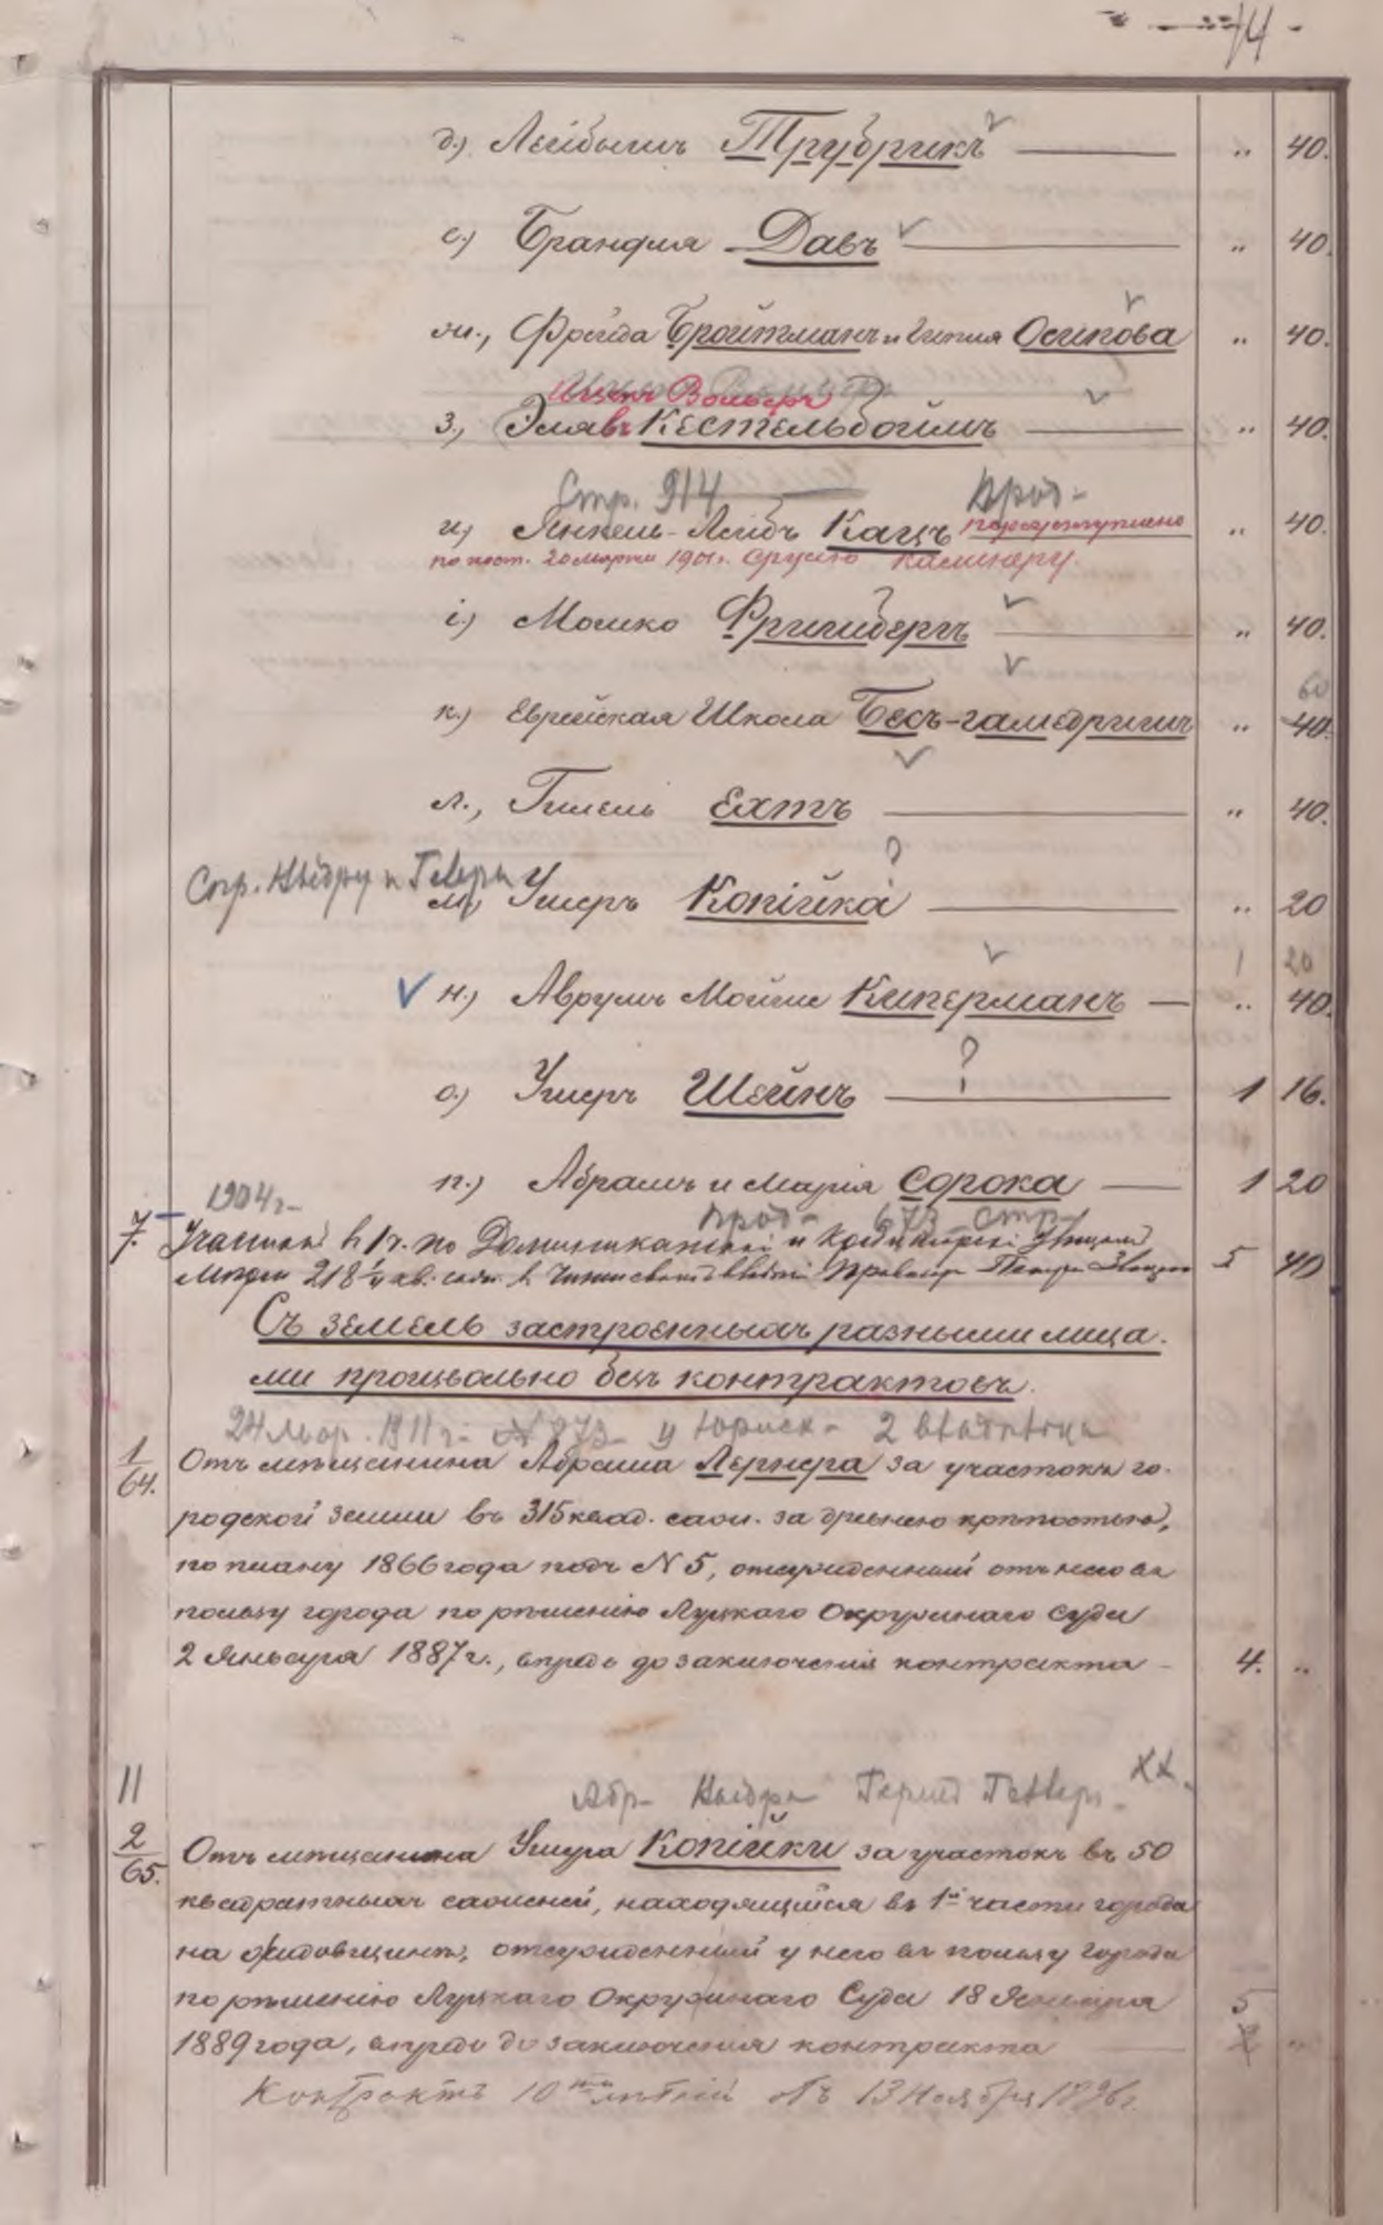 74
д.) Лейбышъ Трубрикъ — „ 40.
е.) Брандля Давъ — „ 40.
ж., Фрейда Бройтманъ и Гитля Осипова „ 40.
Вольфъ
з., Эля въ Кестельбоймъ — „ 40.
Стр. 914
и.) Янкель-Лейбъ Кацъ переуступлено „ 40.
по пост. 20 марта 1901 г. Сруслю Каминеру.
і.) Мошко Фришбергъ — „ 40.
60
к.) Еврейская Школа Бесъ-гамедришъ „ 40.
л., Гилель Ехтъ — „ 40.
?
м., Ушеръ Копійка — „ 20
1 20
н.) Аврумъ Мойше Киперманъ — „ 40.
?
о.) Ушеръ Шейнъ — 1 16.
п.) Абрамъ и Марія Сорока — 1 20
1904 г.
673 стр.
7. Участокъ в 1 ч. по Доминиканской и улицамъ
218 кв. саж. в 5 40
Съ земель застроенныхъ разными лица-
ми произвольно безъ контрактовъ.
24 Мар. 1911 г. № 873 2
1/64. Отъ мѣщанина Абрама Лернера за участокъ го-
родской земли въ 315 квад. саж. за древнею крѣпостью,
по плану 1866 года подъ № 5, отсужденный отъ него въ
пользу города по рѣшенію Луцкаго Окружнаго Суда
2 Января 1887 г., впредь до заключенія контракта — 4. „
11
XX.
2/65. Отъ мѣщанина Ушера Копійки за участокъ въ 50
квадратныхъ саженей, находящійся въ 1й части города
на Жидовщинѣ, отсужденный у него въ пользу города
по рѣшенію Луцкаго Окружнаго Суда 18 Января 5
1889 года, впредь до заключенія контракта — „
Контрактъ 10 тилѣтній отъ 13 Ноября 1896 г.